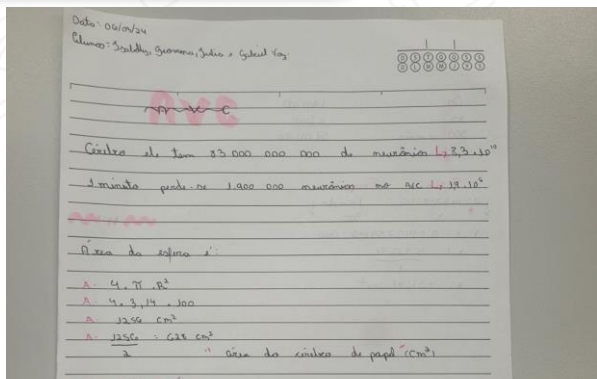 Data: 06/05/24
Alunos: Isabelly, Giovanna, Julia e Gabriel Vaz.
D S T Q Q S S
D L M M J V S
AVC
Cérebro ele tem 83 000 000 000 de neurônios L> 8,3 . 10¹⁰
1 minuto perde-se 1.900 000 neurônios no AVC L> 1,9 . 10⁶
Área da esfera é:
A= 4 . π . R²
A= 4 . 3,14 . 100
A= 1256 cm²
A= 1256 = 628 cm²
2 " área do cérebro de papel " (cm²)